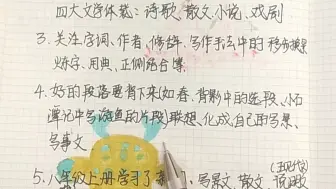 四大文学体裁：诗歌、散文、小说、戏剧
3、关注字词、作者、修辞、写作手法中的
炼字、用典、正侧结合等
4、好的段落要背下来(如春、背影中的选段、小石
潭记中写游鱼的片段)联想、化成自己的写景、
写事文
5、八年级上册学习了 写景文 散文 说明